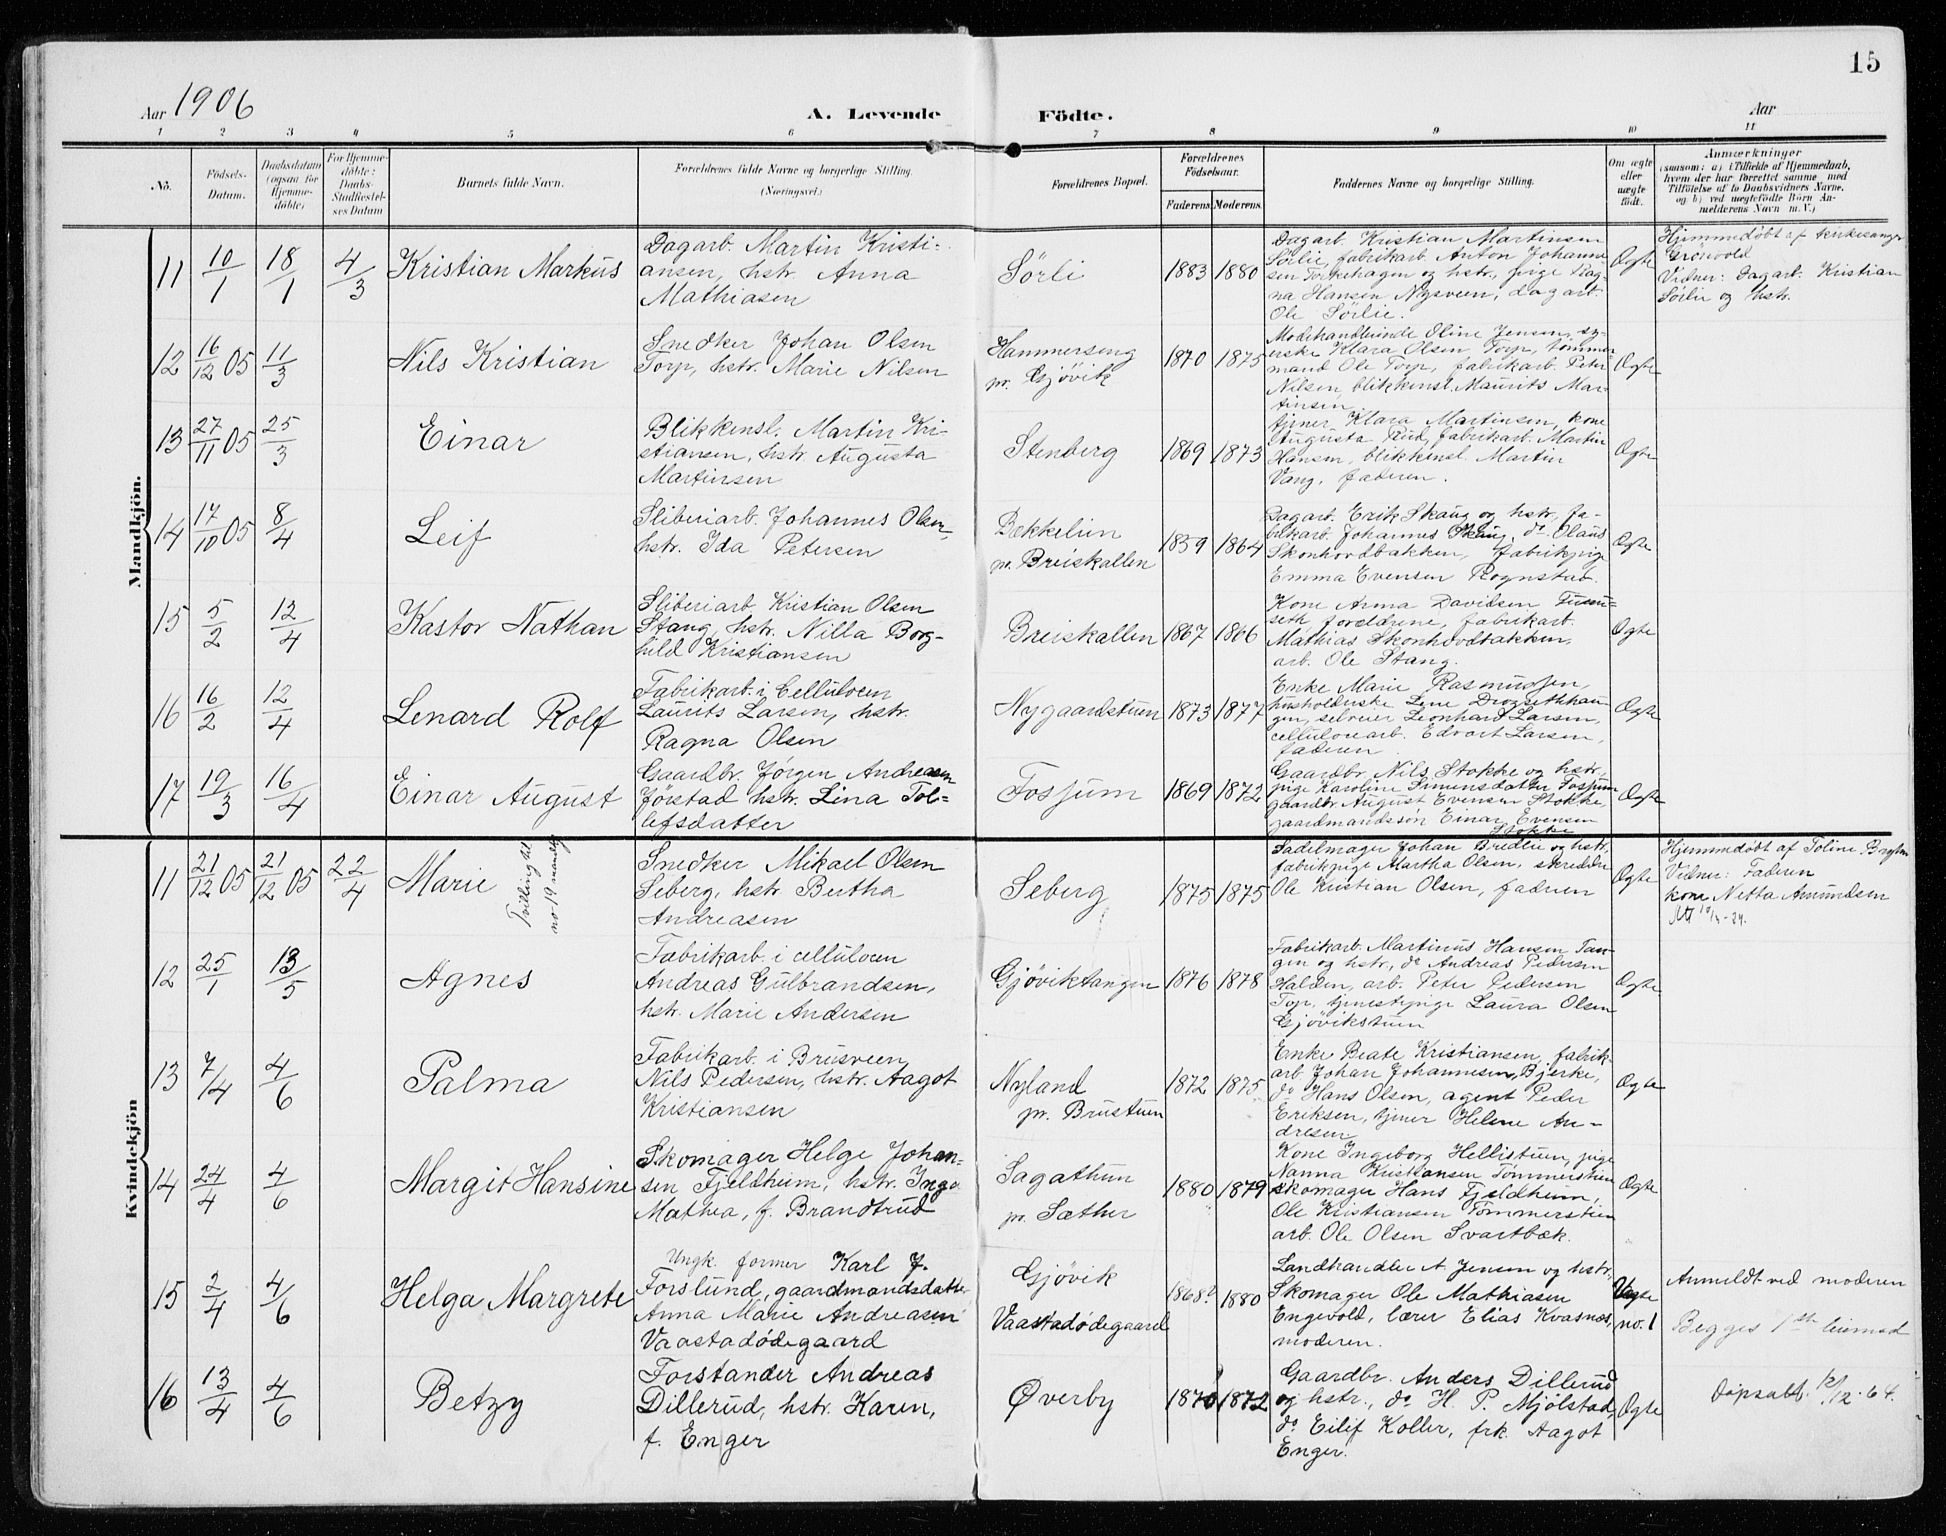 15
Aar 1906
A. Levende Födte.
Aar
1 2 3 4 5 6 7 8 9 10 11
No.
Födsels-
Datum.
Daabsdatum
(ogsaa for
Hjemme-
döbte)
For Hjemme-
döbte:
Daabs-
Stadfæstel-
ses Datum
Barnets fulde Navn.
Forældrenes fulde Navne og borgerlige Stilling.
(Næringsvei.)
Forældrenes Bopæl.
Forældrenes
Födselsaar.
Faderens Moderens
Faddernes Navne og borgerlige Stilling.
Om ægte
eller
uægte
födt.
Anmærkninger
(saasom: a) i Tilfælde af Hjemmedaab,
hvem der har forrettet samme med
Tilföielse af to Daabsvidners Navne,
og b) ved uægtefödte Börn An-
melderens Navn m. V.)
Mandkjön.
11
10/1
18/1
4/3
Kristian Markus
Dagarb. Martin Kristi-
ansen, hstr. Anna
Mathiasen
Sörli
1883 1880
Dagarb. Kristian Martinsen
Sörlie, fabrikarb. Anton Johanne-
sen Torkehagen og hstr, pige Rag-
na Hansen Nysveen, dagarb.
Ole Sörlie.
Ægte
Hjemmedöbt af kirkesanger
Grönvold
Vidner: Dagarb. Kristian
Sörlie og hstr.
12
16/12 05
11/3
Nils Kristian
Snedker Johan Olsen
Torp, hstr. Marie Nilsen
Hammerseng
pr. Gjövik
1870 1875
Modehandlerinde Oline Jensen, sy-
erske Klara Olsen Torp, tömmer-
mand Ole Torp, fabrikarb. Peter
Nilsen, blikkensl. Maurits Mar-
tinsen
Ægte
13
27/11 05
25/3
Einar
Blikkensl. Martin Kri-
stiansen, hstr Augusta
Martinsen
Stenberg
1869 1873
tjener Klara Martinsen, kone
Augusta Rud, fabrikarb. Martin
Hansen, blikkensl. Martin
Vang, faderen.
Ægte
14
17/10 05
8/4
Leif
Sliberiarb. Johannes Olsen,
hstr. Ida Petersen
Bækkelien
pr. Breiskallen
1859 1864
Dagarb. Erik Skaug og hstr, fa-
brikarb. Johannes Skaug, do Olaus
Skonhovdbakken, fabrikpige
Emma Evensen Rognstad.
Ægte
15
5/2
12/4
Kastor Nathan
Sliberiarb. Kristian Olsen
Stang, hstr. Nilla Borg-
hild Kristiansen
Breiskallen
1867 1866
Kone Anna Davidsen
forældrene, fabrikarb.
Mathias Skonhovdbakken,
arb. Ole Stang.
Ægte
16
16/2
12/4
Lenard Rolf
Fabrikarb. i Celluloen
Laurits Larsen, hstr.
Ragna Olsen
Nygaardstuen
1873 1877
Enke Marie Rasmussen,
husholderske Lene Drogsethhau-
gen, selveier Leonhard Larsen,
cellulosearb. Edvart Larsen,
faderen
Ægte
17
19/3
16/4
Einar August
Gaardbr. Jörgen Andreasen
Jörstad hstr. Lina Tol-
lefsdatter
Fossum
1869 1872
Gaardbr Nils Stokke og hstr,
pige Karoline Simensdatter Fossum
gaardbr. August Evensen Stokke,
gaardmandssön Einar Evensen
Stokke
Ægte
Kvindekjön
11
21/12 05
21/12 05
22/4
Marie
Tvilling til
no 19 mandkj
Snedker Mikael Olsen
Seberg, hstr Bertha
Andreasen
Seberg
1875 1875
Sadelmager Johan Bredlie og hstr.
fabrikpige Martha Olsen, skrædder
Ole Kristian Olsen, faderen
Ægte
Hjemmedöbt af Toline
Vidner: Faderen
kone Netta Amundsen
12
25/1
13/5
Agnes
Fabrikarb. i celluloen
Andreas Gulbrandsen,
hstr. Marie Andersen
Gjöviktangen
1876 1878
Fabrikarb. Martinus Hansen Tan-
gen og hstr, do Andreas Pedersen
Halden, arb. Peter Pedersen
Torp, tjenestepige Laura Olsen
Gjövikstuen
Ægte.
13
7/4
4/6
Palma
Fabrikarb. i Brusveen,
Nils Pedersen, hstr. Aagot
Kristiansen
Nyland
pr. Brustuen
1872 1875
Enke Beate Kristiansen, fabrik-
arb Johan Johannesen, Bjerke,
do Hans Olsen, agent Peder
Eriksen, tjener Helene An-
dresen
Ægte
14
24/4
4/6
Margit Hansine
Skomager Helge Johan-
sen Fjeldheim, hstr. Inga
Mathea, f. Brandtrud
Sagathun
pr. Sæther
1880 1879
Kone Ingeborg Hellistuen, pige
Nanna Kristiansen Tömmerstien
skomager Hans Fjeldheim,
Ole Kristiansen Tömmerstien
arb. Ole Olsen Svartbæk.
Ægte
15
2/4
4/6
Helga Margrete
Ungk. former Karl J.
Forslund, gaardmandsdatter
Anna Marie Andreasen
Vaastadödegaard
Gjövik
Vaastadödegaard
1868? 1880
Landhandler A Jensen og hstr,
Skomager Ole Mathiasen
Engevold, lærer Elias Kvasnæs,
moderen.
Uægte
no. 1
Anmeldt ved moderen
Begges 1ste leiermaal
16
13/4
4/6
Betzy
Forstander Andreas
Dillerud, hstr. Karen,
f. Enger
Øverby
1870 1872
Gaardbr. Anders Dillerud
og hstr., do H. P. Mjölstad,
do Eilif Koller, frk. Aagot
Enger.
Ægte
döpsatt.